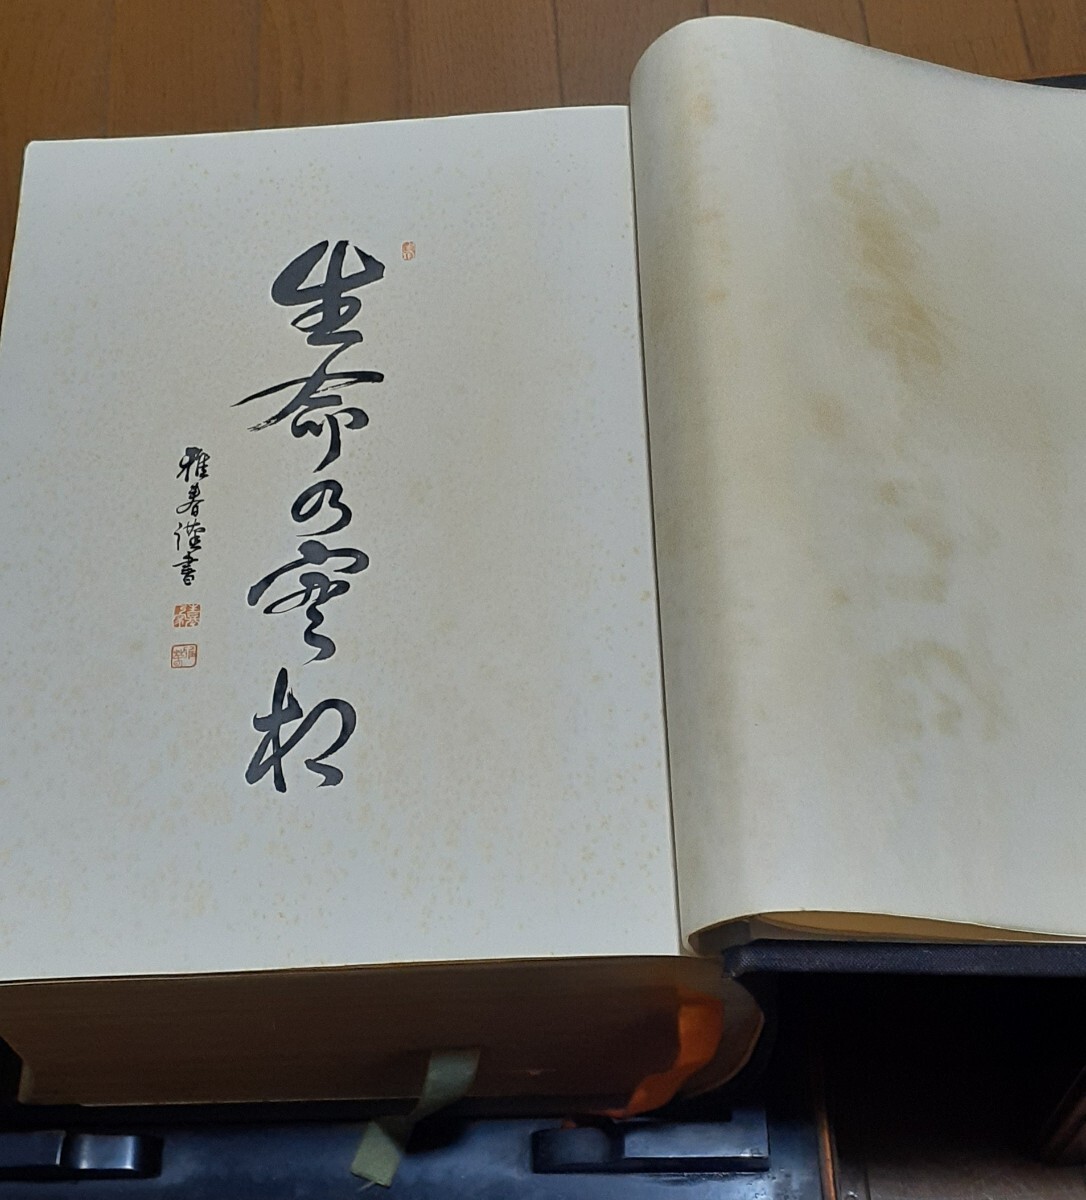 生命の實相
雅春謹書